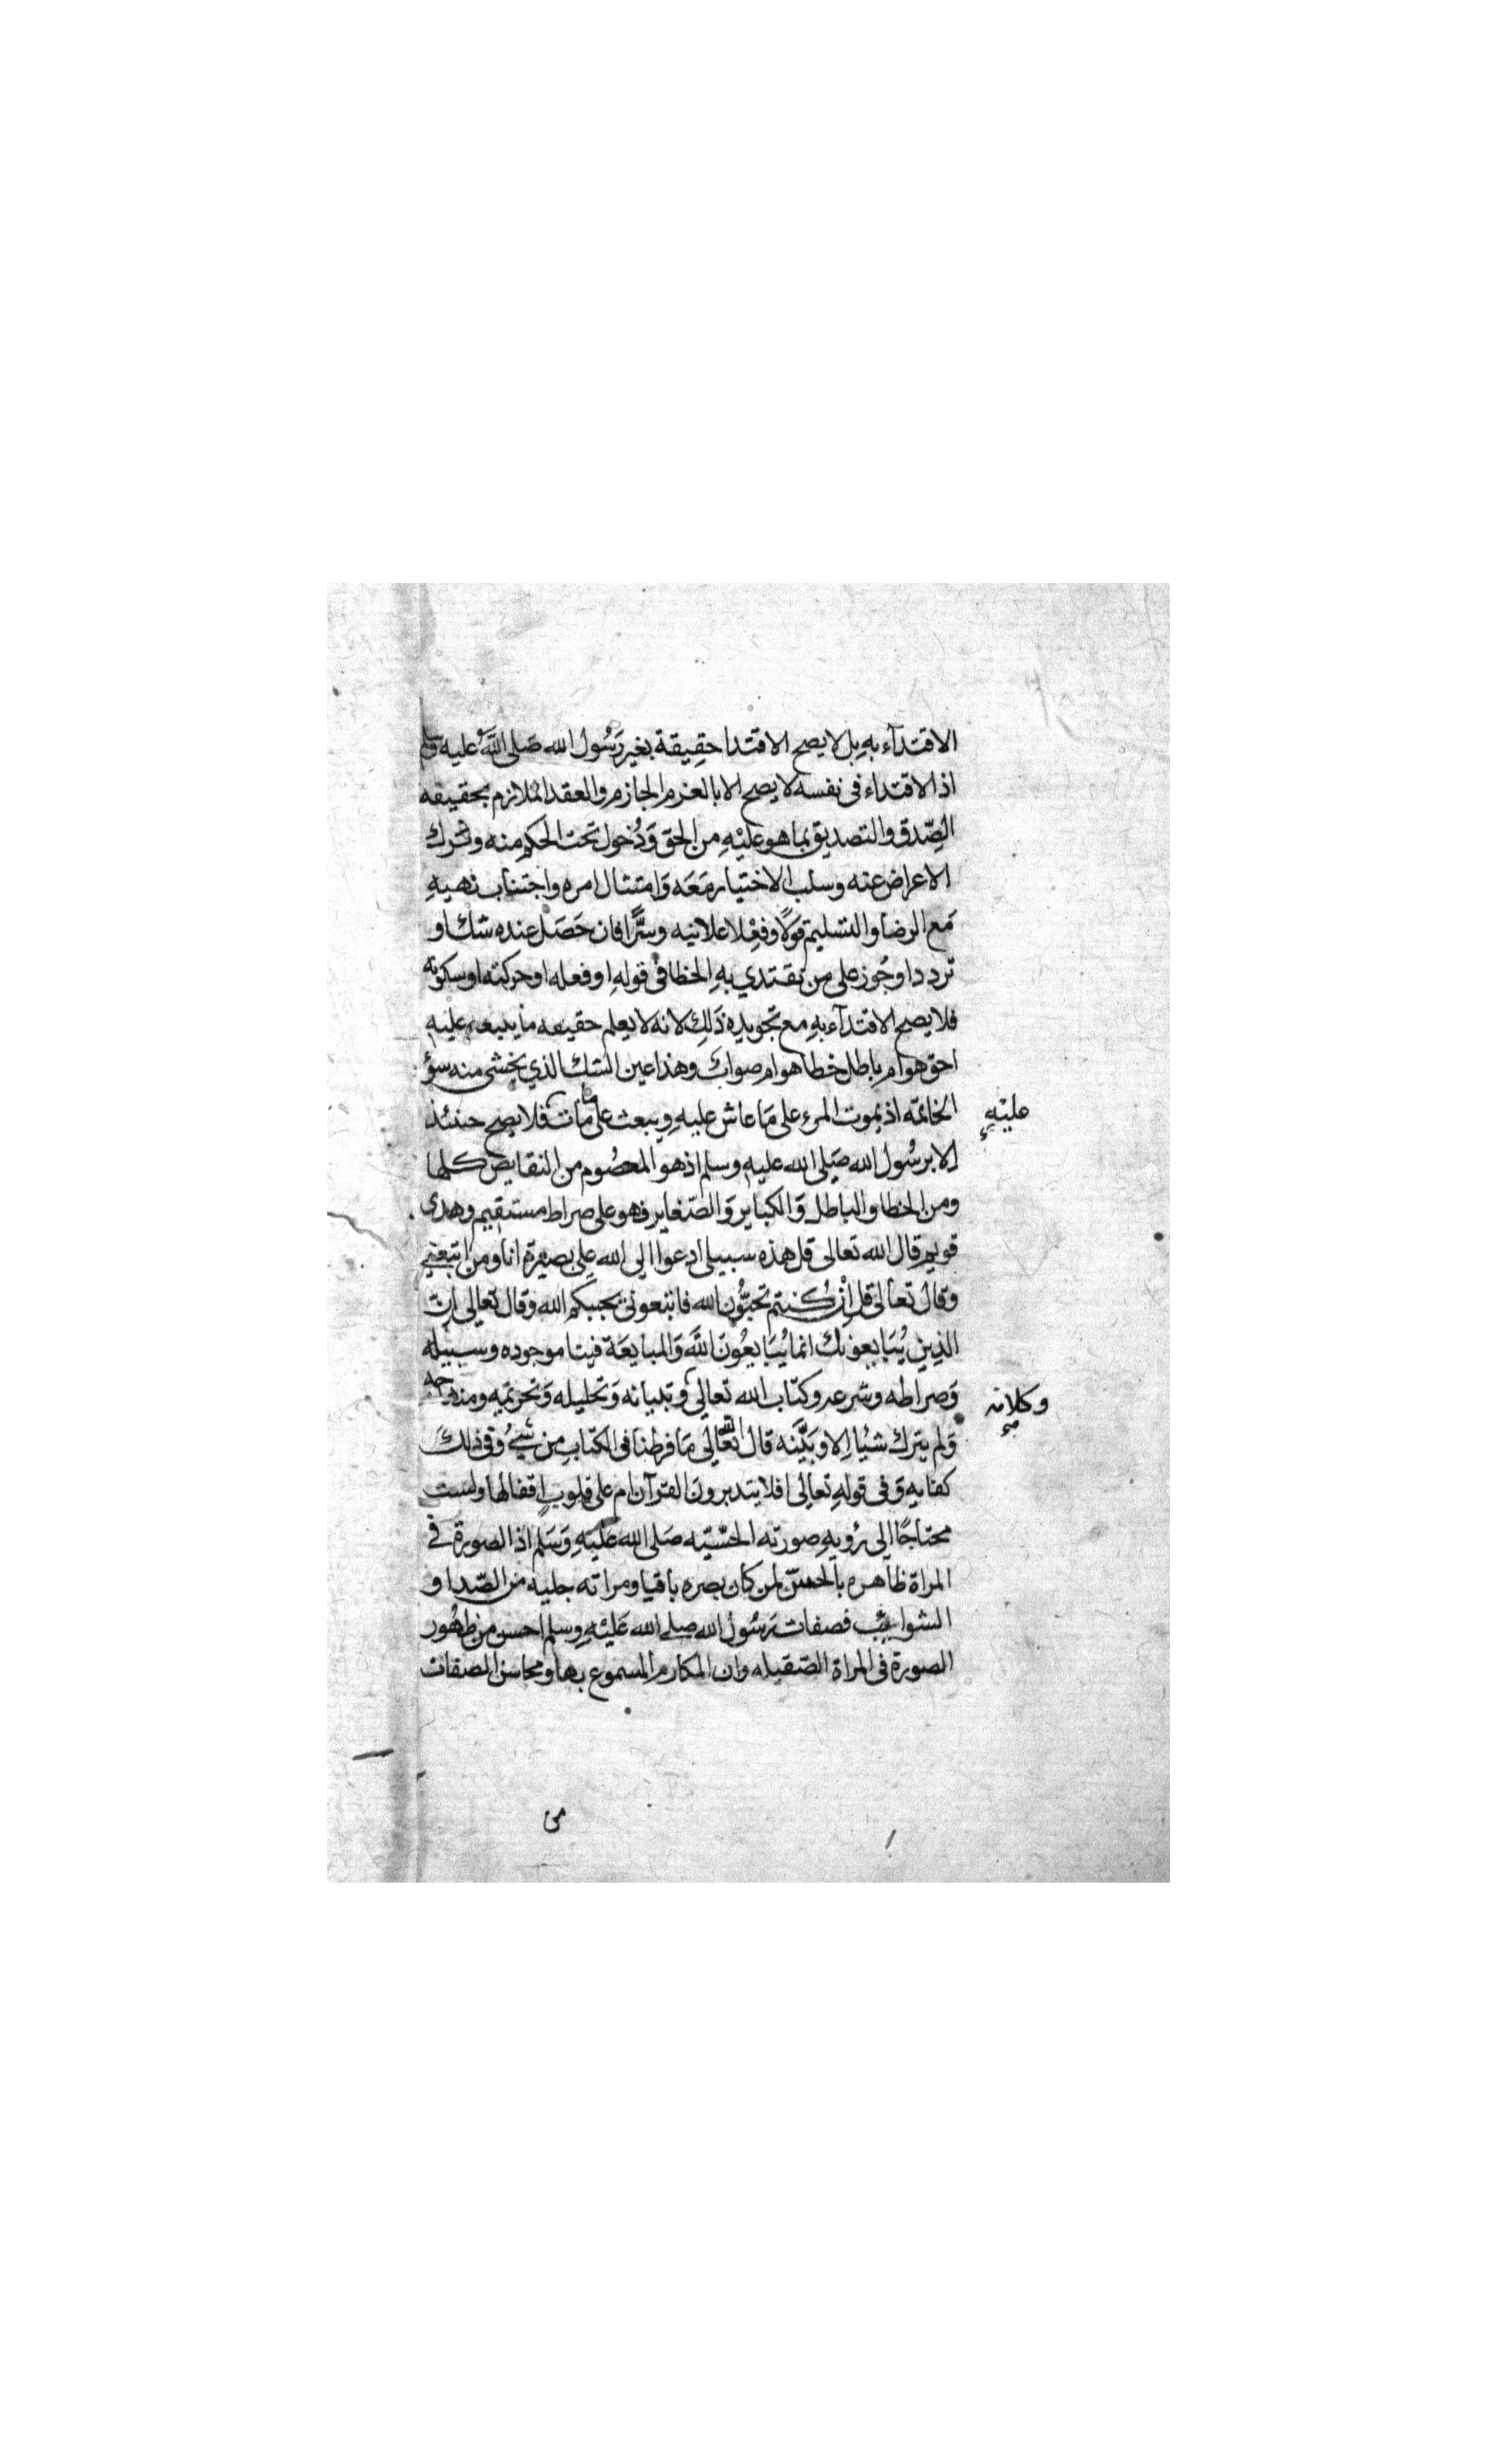 الاقتدآء به بل لا يصح الاقتدا حقيقة بغير رَسُول الله صَلى اللَّهُ عليه وسلم
اذ الاقتداء فى نفسه لا يصح الا بالعزم الجازم والعقد الملازم بحقيقه
الصِّدق والتصديق بما هو عليْهِ من الحق وَدُخول تحت الحكم منه وترك
الاعراض عنه وسلب الاختيار مَعَه وَامتثال امره واجتناب نهيهِ
مَع الرضا والتسليم قوْلًا وفِعْلا علانيه وسرًّا فان حَصَل عنده شك او
تردد او جُوز على من تقتدي بهِ الخطا فى قولهِ او فعله او حركته او سكوته
فلا يصح الاقتدآء بهِ مع تجويده ذَلِك لانه لا يعلم حقيقه ما عليهِ
احق هو ام باطل خطا هو ام صواب وهذا عين الشك الذي يخشى منه سؤ
الخاتمه اذ يموت المرء على مَا عاش عليهِ ويبعث على ما مات فلا يصح حينئذ
عليْهِ
الا برسُول الله صَلى الله عليهِ وسلم اذ هو المعصُوم من النقايص كلها
ومن الخطا والباطل وَالكبايرِ وَالصّغاير فهو على صراط مستقيم وهدى
قويم قال الله تعالى قل هذه سبيلى ادعوا الى الله على بصيرة انا ومن اتبعني
وقال تعالى قل اِنْ كُنتم تحبّوُن الله فاتبعونى يحببكم الله وقال تعالى اِنّ
الذِين يُبَايعونك انما يُبَايعُونَ اللَّهَ وَالمبايعَة فينا موجوده وسبيله
وَصراطه وشرعه وكتاب الله تعالى وتبيانه وَتحليله وَتحريمه ومنهجه
وكلامه
وَلم يترك شيْئا اِلا وبَيَّنه قال الله تعَالى مَا فرطنا فى الكتابِ مِن شئ وفى ذلك
كفايه وَفى قولهِ تعالى افلا يتدبرون القرآن ام على قلوبٍ اقفالها ولست
محتاجًا الى رُويهِ صورته الحسّيّه صَلى الله عليهِ وَسَلم اذ الصورة في
المراة ظاهره بالحسّ لمن كان بصره باقيا ومراته جليه من الصّدا و
الشوائب فصفات رَسُول الله صلى الله عَليْهِ وسلم احسن من ظهُور
الصورة فى المراة الصّقيله وان المكارم المسموع بها ومحاسن الصفات